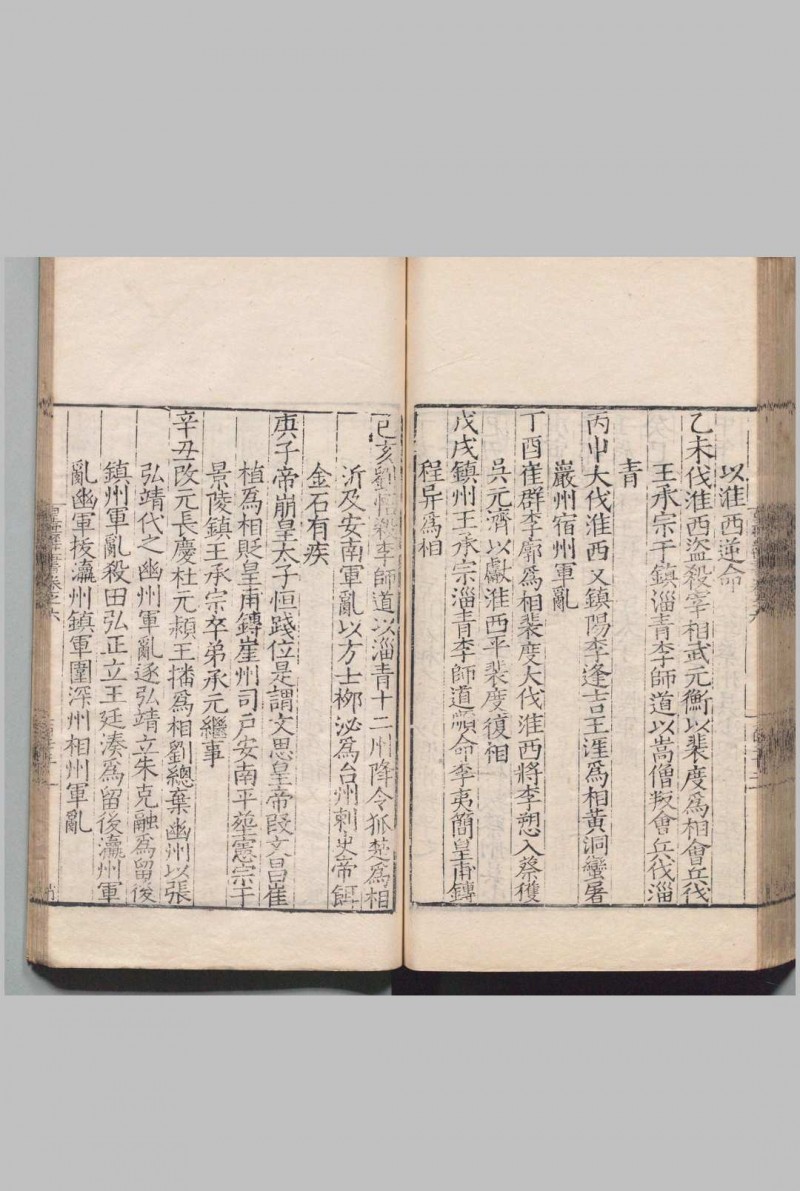 以淮西逆命
乙未伐淮西盜殺宰相武元衡以裴度爲相會兵伐
王承宗于鎮淄青李師道以嵩僧叛會兵伐淄
青
丙申大伐淮西又鎮陽李逢吉王涯爲相黃洞蠻屠
巖州宿州軍亂
丁酉崔群李鄘爲相裴度大伐淮西將李愬入蔡獲
吳元濟以獻淮西平裴度復相
戊戌鎮州王承宗淄青李師道順命李夷簡皇甫鏄
程异爲相
己亥劉悟殺李師道以淄青十二州降令狐楚爲相
沂及安南軍亂以方士栁泌爲台州刺史帝餌
金石有疾
庚子帝崩皇太子恒踐位是謂文思皇帝段文昌崔
植爲相貶皇甫鏄崖州司戸安南平塟憲宗于
景陵鎮王承宗卒弟承元繼事
辛丑改元長慶杜元頴王播爲相劉總棄幽州以張
弘靖代之幽州軍亂逐弘靖立朱克融爲留後
鎮州軍亂殺田弘正立王廷湊爲留後瀛州軍
亂幽軍拔瀛州鎮軍圍深州相州軍亂